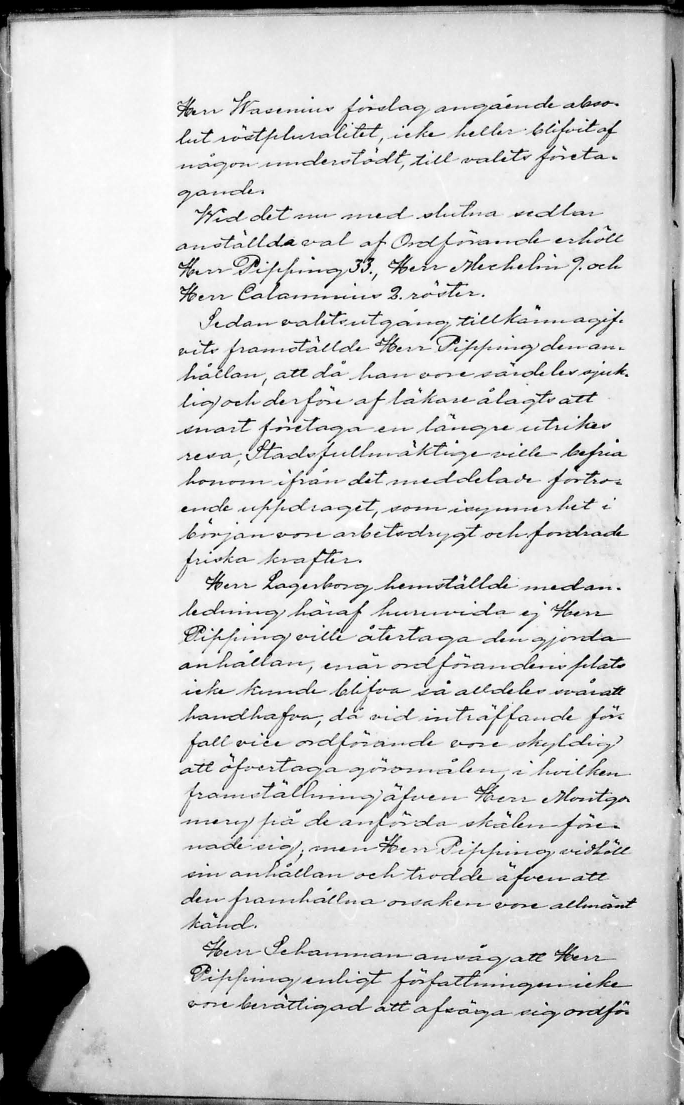 Herr Wasenius förslag angående abso-
lut röstpluralitet, icke heller blifvit af
någon understödt, till valets företa-
gande.
Wid det nu med slutna sedlar
anställda val af Ordförande erhöll
Herr Pipping 33., Herr Mechelin 9. och
Herr Calamnius 2. röster.
Sedan valets utgång tillkännagif-
vits framställde Herr Pipping den an-
hållan, att då han vore särdeles sjuk-
lig och derföre af läkare ålagts att
snart företaga en längre utrikes
resa, Stadsfullmäktige ville befria
honom ifrån det meddelade förtro-
ende uppdraget, som isynnerhet i
början vore arbetsdrygt och fordrade
friska krafter.
Herr Lagerborg hemställde med an-
ledning häraf huruvida ej Herr
Pipping ville återtaga den gjorda
anhållan, enär ordförandens plats
icke kunde blifva så alldeles svår att
handhafva, då vid inträffande för-
fall vice ordförande vore skyldig
att öfvertaga göromålen, i hvilken
framställning äfven Herr Montgo-
mery på de anförda skälen före-
nade sig; men Herr Pipping vidhöll
sin anhållan och trodde äfven att
den framhållna orsaken vore allmänt
känd.
Herr Schauman ansåg att Herr
Pipping enligt författningen icke
vore berättigad att afsäga sig ordför-